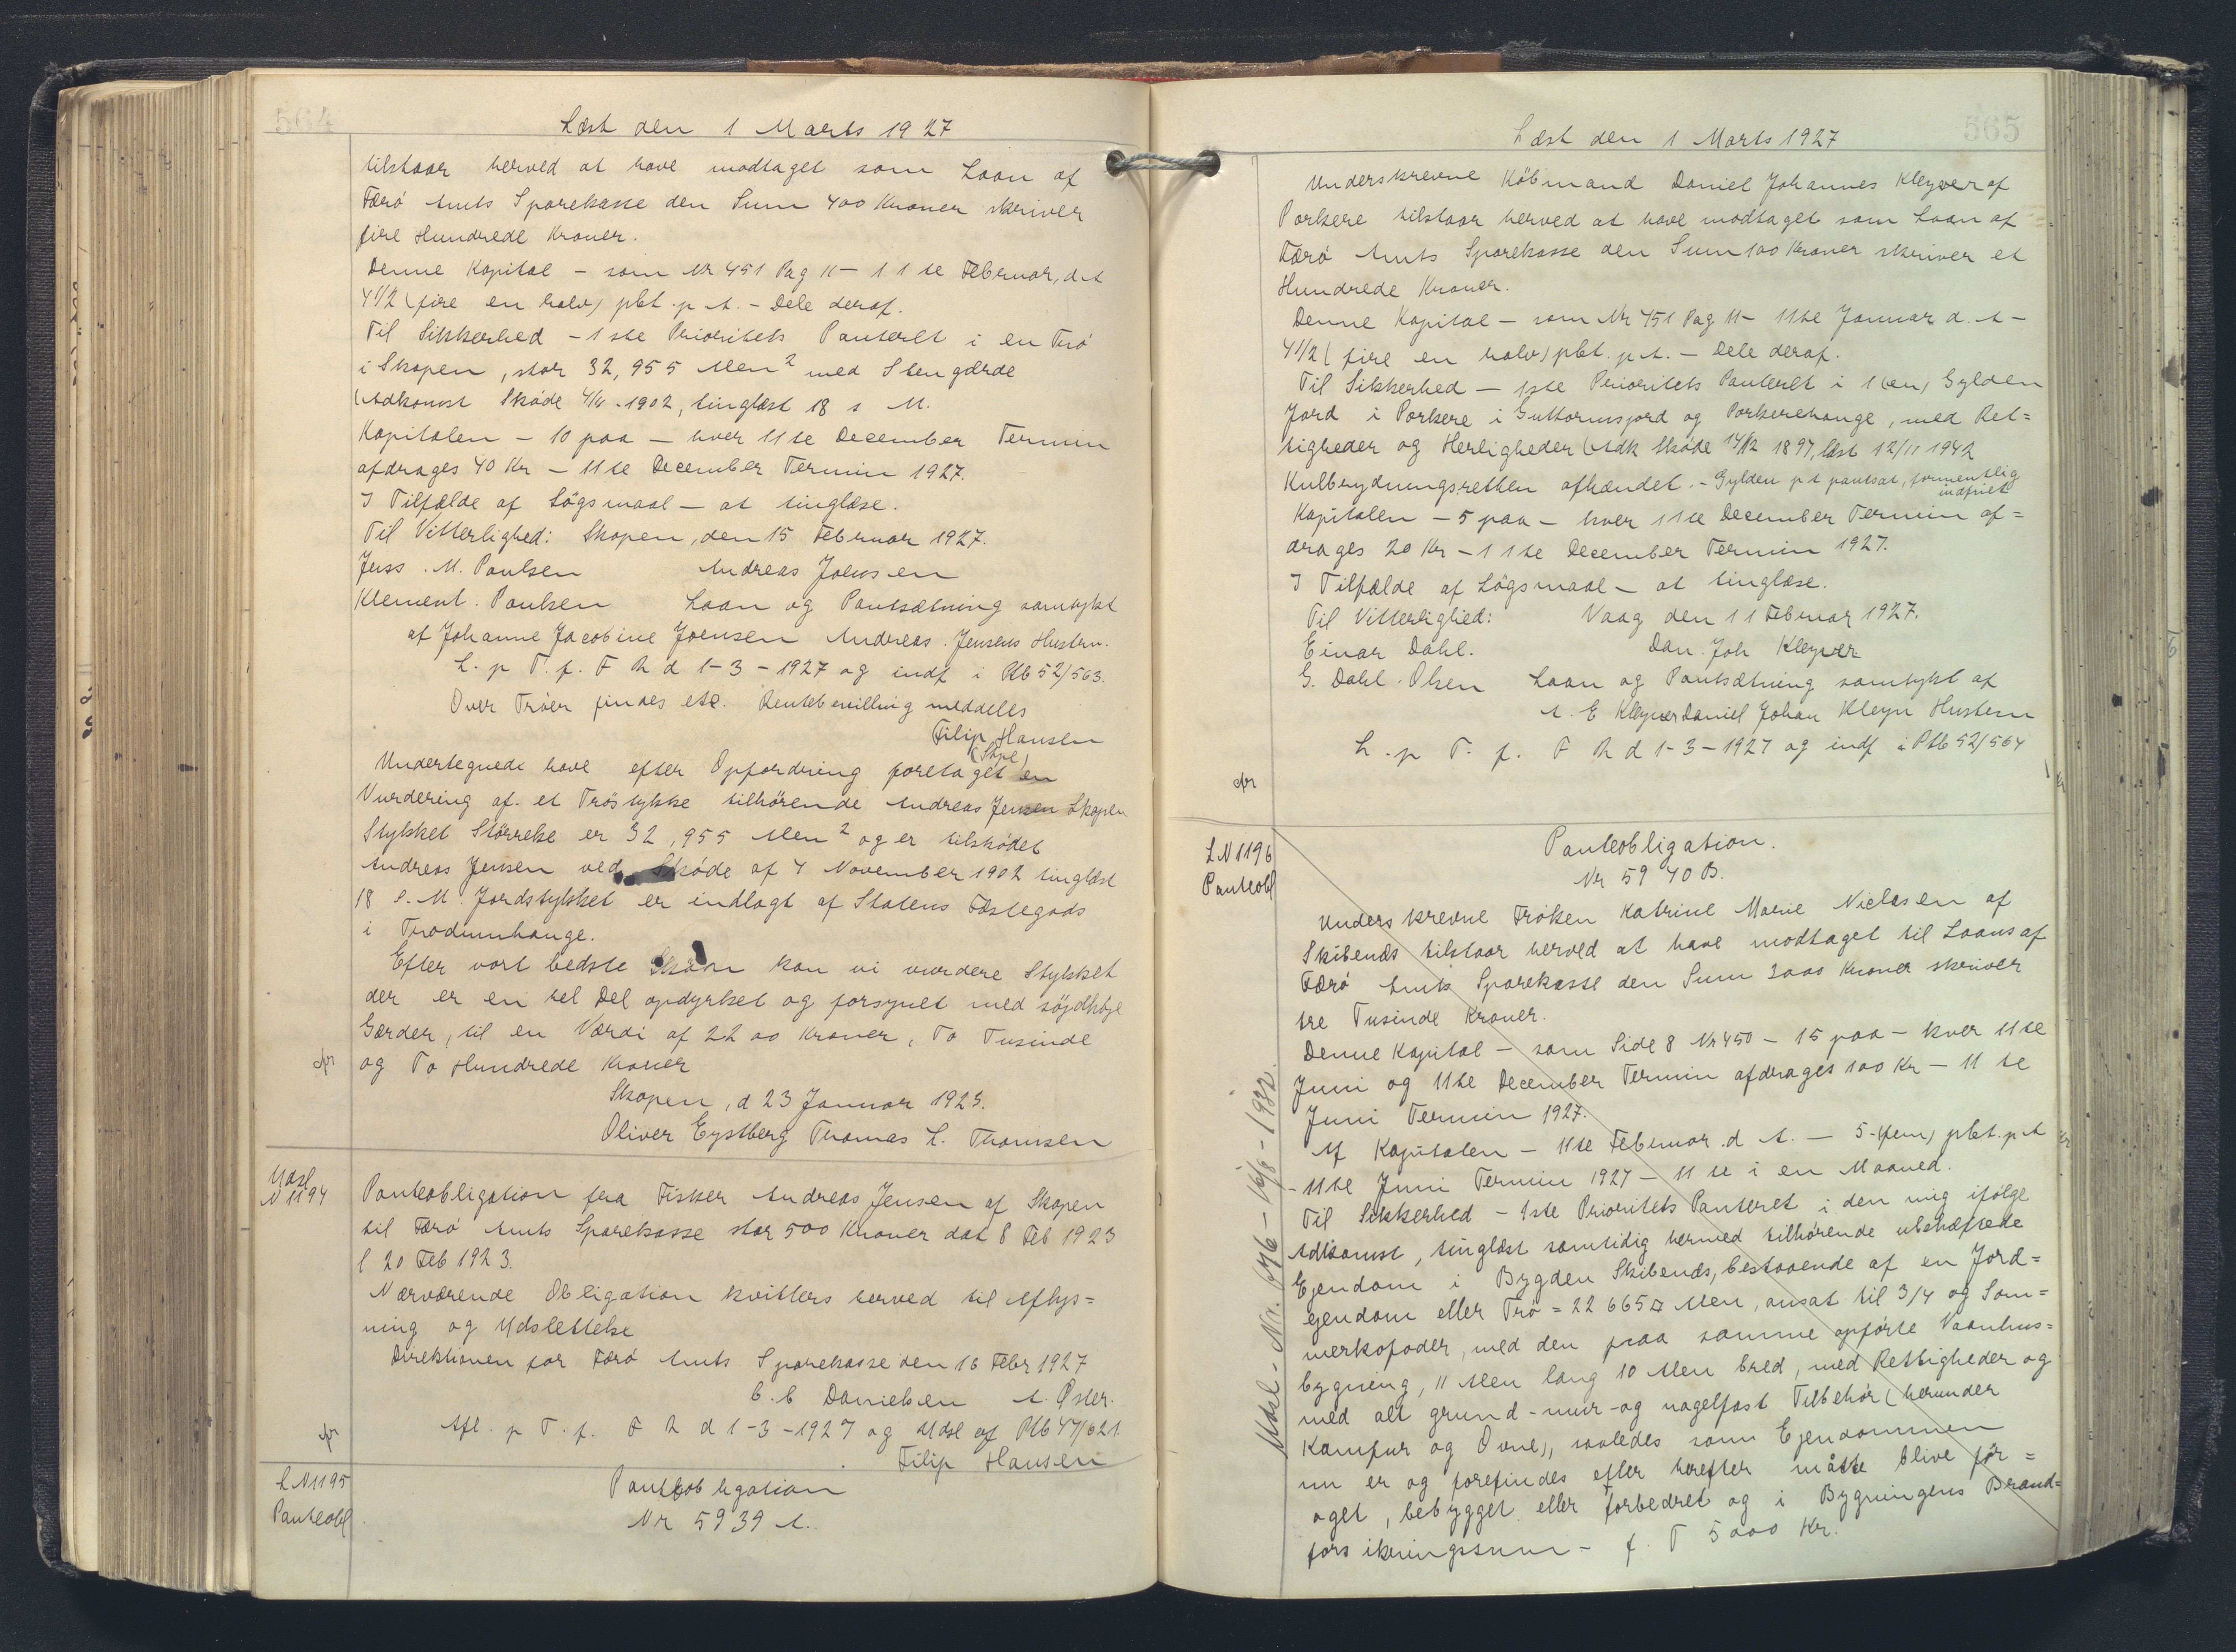 564
Læst den 1 Marts 1927
tilstaar herved at have modtaget som Laan af
Færö Amts Sparekasse den Sum 400 Kroner skriver
fire Hundrede Kroner.
Denne Kapital - som Nr 451 Pag 11 - 11te Februar, d A
4 1/2 (fire en halv) pCt. p A. - Dele deraf.
Til Sikkerhed - 1ste Prioritets Panteret i en Trö
i Skopen, stor 32,955 Alen² med Stengærde
(Adkomst Sköde 4/11 1902, tinglæst 18 s M.
Kapitalen - 10 paa - hver 11te December Termin
afdrages 40 Kr - 11te December Termin 1927.
I Tilfælde af Lögsmaal - at tinglæse.
Til Vitterlighed: Skopen, den 15 Februar 1927.
Jens. M. Poulsen Andreas Joensen
Klement. Poulsen Laan og Pantsætning samtykt
af Johanne Jacobine Joensen Andreas. Jensens Hustru.
L. p T. f. F R d 1-3-1927 og indf i Ptb 52/563.
Over Tröer findes etc. Rentebevilling meddeles
Filip Hansen
(Skpl)
Undertegnede have efter Opfordring foretaget en
Vurdering af et Tröstykke tilhörende Andreas Jensen Skopen
Stykket Störrelse er 32,955 Alen² og er tilsködet
Andreas Jensen ved Sköde af 4 November 1902 tinglæst
18 s. M. Jordstykket er indlagt af Statens Fæstegods
i Trodumhauge.
Efter vort bedste Skön kan vi vurdere Stykket
der er en hel Del opdyrket og forsynet med
Gærder, til en Værdi af 2200 Kroner, To Tusinde
og To Hundrede Kroner
Skopen, d 23 Januar 1923.
Oliver Eystberg Thomas L. Thomsen
Udsl
N 1194
Panteobligation fra Fisker Andreas Jensen af Skopen
til Færö Amts Sparekasse stor 500 Kroner dat 8 Feb 1923
l 20 Feb 1923.
Nærværende Obligation kvitters herved til Aflys=
ning og Udslettelse
Direktionen for Færö Amts Sparekasse den 16 Febr 1927
C. C Danielsen A. Öster.
Afl. p T. f. F R d 1-3-1927 og Udsl af Ptb 47/621.
Filip Hansen
LN 1195
Panteobl
Panteobligation
Nr 5939 A.
565
Læst den 1 Marts 1927
Underskrevne Köbmand Daniel Johannes Kleyver af
Porkere tilstaar herved at have modtaget som Laan af
Færö Amts Sparekasse den Sum 100 Kroner skriver et
Hundrede Kroner.
Denne Kapital - som Nr 451 Pag 11 - 11te Januar d. A -
4 1/2 (fire en halv) pCt. p A. - Dele deraf.
Til Sikkerhed - 1ste Prioritets Panteret i 1 (en) Gylden
Jord i Porkere i Guttormsjord og Porkerehauge, med Ret=
tigheder og Herligheder (Adk Sköde 14/12 1897, læst 12/11 1942
Kulbrydningsretten afhændet. - Gylden p t pantsat, formentlig
indfriet
Kapitalen - 5 paa - hver 11te December Termin af=
drages 20 Kr - 11te December Termin 1927.
I Tilfælde af Lögsmaal - at tinglæse.
Til Vitterlighed: Vaag den 11 Februar 1927.
Einar Dahl. Dan. Joh Kleyver
G. Dahl-Olsen Laan og Pantsætning samtykt af
A. E Kleyver Daniel Johan Kleyn Hustru
L. p T. f. F R d 1-3-1927 og indf i Ptb 52/564
LN 1196
Panteobl
Panteobligation.
Nr 5940 B.
Underskrevne Fröken Katrine Marie Niclasen af
Skibenæs tilstaar herved at have modtaget til Laans af
Færö Amts Sparekasse den Sum 3000 Kroner skriver
tre Tusinde Kroner.
Denne Kapital - som Side 8 Nr 450 - 15 paa - hver 11te
Juni og 11te December Termin afdrages 100 Kr - 11te
Juni Termin 1927.
Af Kapitalen - 11te Februar d A. - 5 (fem) pCt. p A
- 11te Juni Termin 1927 - 11te i en Maaned.
Til Sikkerhed - 1ste Prioritets Panteret i den mig ifölge
Adkomst, tinglæst samtidig hermed tilhörende ubehæftede
Ejendom i Bygden Skibenæs, bestaaende af en Jord=
ejendom eller Trö = 22665 □ Alen, ansat til 3/4 og Som=
merkofoder, med den paa samme opförte Vaanhus=
bygning, 11 Alen lang 10 Alen bred, med Rettigheder og
med alt grund-mur-og nagelfast Tilbehör (herunder
Komfur og Ovne), saaledes som Ejendommen
nu er og forefindes eller herefter måtte blive for=
oget, bebygget eller forbedret og i Bygningens Brand=
forsikringssum - f. T 5000 Kr.
Udsl - Nr. 1776 - 16/8 - 1932.